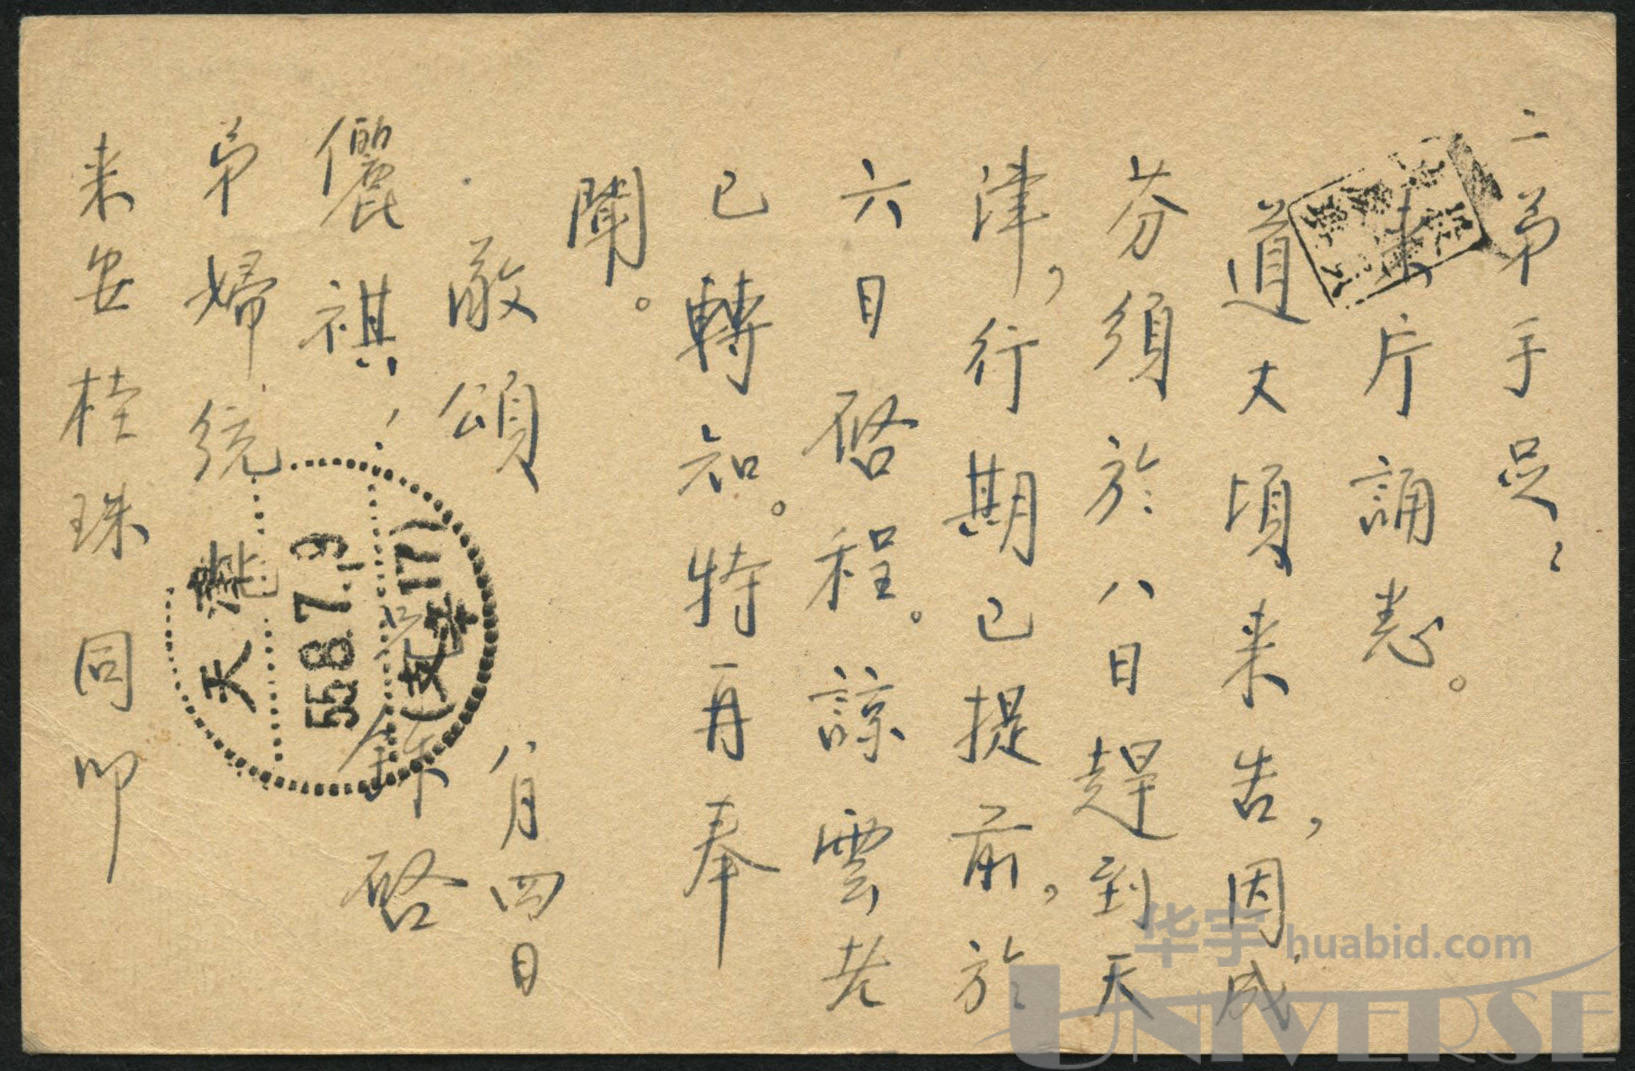 二弟手足：
来片誦悉。
道丈頃来告，因成
芬須於八日趕到天
津，行期已提前，於
六日啓程。諒雲老
已轉知。特再奉
聞。
敬頌
儷祺！
八月四日
啓
弟婦統
来安桂珠同叩
天津
55.8.7.19
(支17)
华宇 huabid.com
UNIVERSE